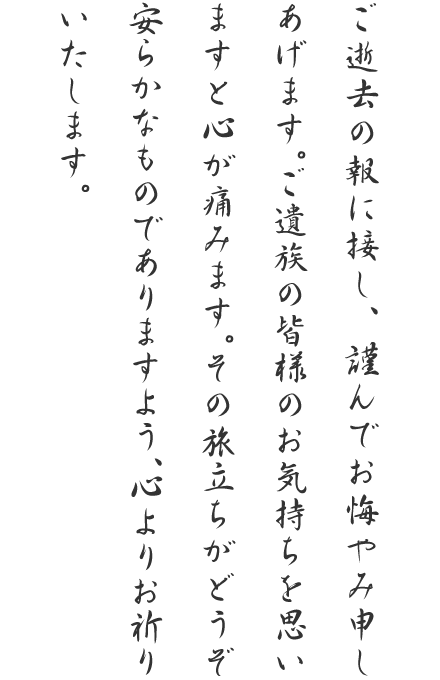 ご逝去の報に接し、謹んでお悔やみ申し
あげます。ご遺族の皆様のお気持ちを思い
ますと心が痛みます。その旅立ちがどうぞ
安らかなものでありますよう、心よりお祈り
いたします。